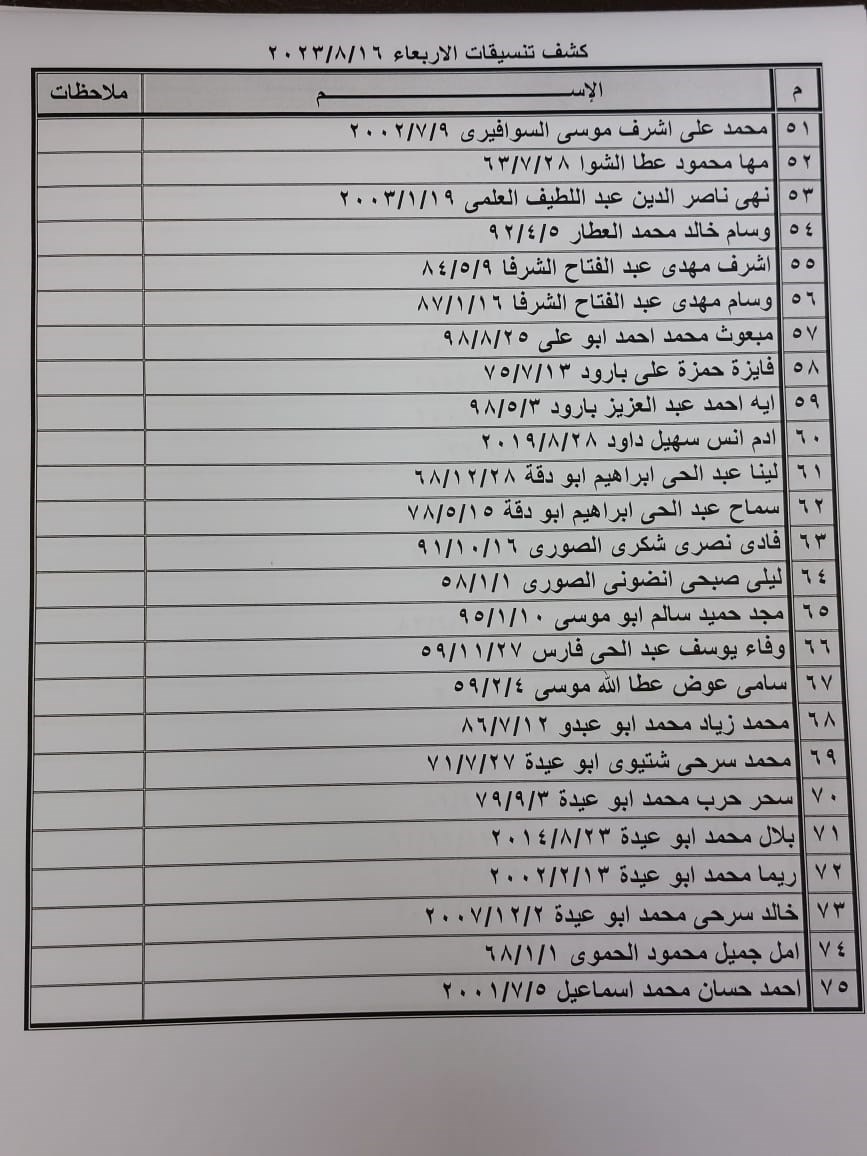 كشف تنسيقات الاربعاء ٢٠٢٣/٨/١٦
م الإســـــــــم ملاحظات
٥١ محمد على اشرف موسى السوافيرى ٢٠٠٢/٧/٩
٥٢ مها محمود عطا الشوا ٦٣/٧/٢٨
٥٣ نهى ناصر الدين عبد اللطيف العلمى ٢٠٠٣/١/١٩
٥٤ وسام خالد محمد العطار ٩٢/٤/٥
٥٥ اشرف مهدى عبد الفتاح الشرفا ٨٤/٥/٩
٥٦ وسام مهدى عبد الفتاح الشرفا ٨٧/١/١٦
٥٧ مبعوث محمد احمد ابو على ٩٨/٨/٢٥
٥٨ فايزة حمزة على بارود ٧٥/٧/١٣
٥٩ ايه احمد عبد العزيز بارود ٩٨/٥/٣
٦٠ ادم انس سهيل داود ٢٠١٩/٨/٢٨
٦١ لينا عبد الحى ابراهيم ابو دقة ٦٨/١٢/٢٨
٦٢ سماح عبد الحى ابراهيم ابو دقة ٧٨/٥/١٥
٦٣ فادى نصرى شكرى الصورى ٩١/١٠/١٦
٦٤ ليلى صبحى انضونى الصورى ٥٨/١/١
٦٥ مجد حميد سالم ابو موسى ٩٥/١/١٠
٦٦ وفاء يوسف عبد الحى فارس ٥٩/١١/٢٧
٦٧ سامى عوض عطا الله موسى ٥٩/٢/٤
٦٨ محمد زياد محمد ابو عبدو ٨٦/٧/١٢
٦٩ محمد سرحى شتيوى ابو عيدة ٧١/٧/٢٧
٧٠ سحر حرب محمد ابو عيدة ٧٩/٩/٣
٧١ بلال محمد ابو عيدة ٢٠١٤/٨/٢٣
٧٢ ريما محمد ابو عيدة ٢٠٠٢/٢/١٣
٧٣ خالد سرحى محمد ابو عيدة ٢٠٠٧/١٢/٢
٧٤ امل جميل محمود الحموى ٦٨/١/١
٧٥ احمد حسان محمد اسماعيل ٢٠٠١/٧/٥